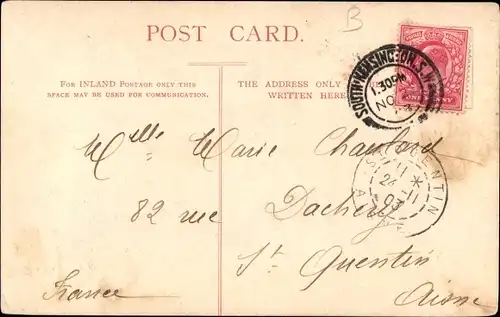 B
POST CARD.
FOR INLAND POSTAGE ONLY THIS
SPACE MAY BE USED FOR COMMUNICATION.
THE ADDRESS ONLY
WRITTEN HERE
SOUTH KENSINGTON.S.W
.30PM
NO
ONE
Mlle Marie
82 rue Dachery
St Quentin
France
Aisne
QUENTIN
24 - 11
03